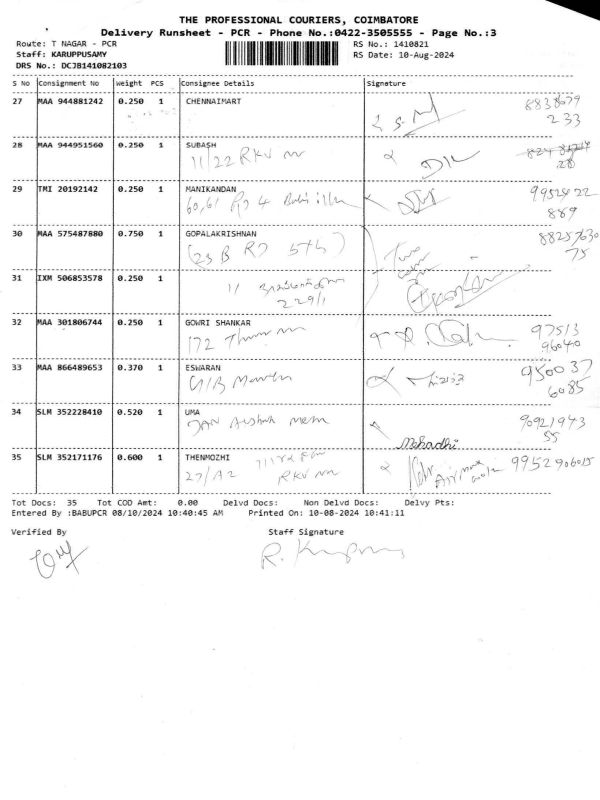 THE PROFESSIONAL COURIERS, COIMBATORE
Delivery Runsheet - PCR - Phone No.:0422-3505555 - Page No.:3
Route: T NAGAR - PCR RS No.: 1410821
Staff: KARUPPUSAMY RS Date: 10-Aug-2024
DRS No.: DCJB141082103
S No Consignment No Weight PCS Consignee Details Signature
27 MAA 944881242 0.250 1 CHENNAIMART 8838679
233
28 MAA 944951560 0.250 1 SUBASH
11/22 RKV
28
29 TMI 20192142 0.250 1 MANIKANDAN 9952422
60,61 889
30 MAA 575487880 0.750 1 GOPALAKRISHNAN 88257630
(23 B RD 5th) 75
31 IXM 506853578 0.250 1 11
229/1
32 MAA 301806744 0.250 1 GOWRI SHANKAR 97513
172 96040
33 MAA 866489653 0.370 1 ESWARAN 950037
6085
34 SLM 352228410 0.520 1 UMA 90921943
Mehadhi 55
35 SLM 352171176 0.600 1 THENMOZHI 9952906015
27/A2 RKV
Tot Docs: 35 Tot COD Amt: 0.00 Delvd Docs: Non Delvd Docs: Delvy Pts:
Entered By :BABUPCR 08/10/2024 10:40:45 AM Printed On: 10-08-2024 10:41:11
Verified By Staff Signature